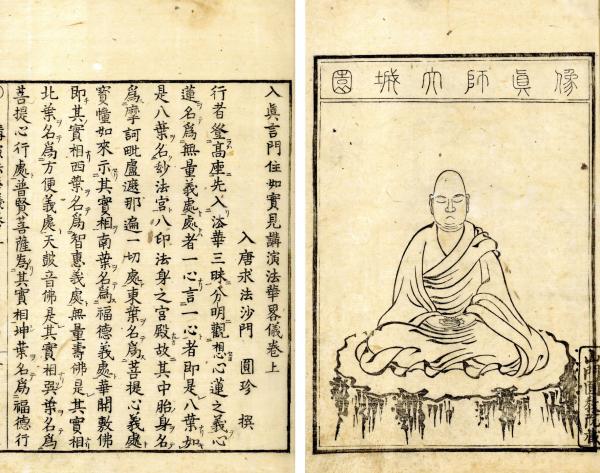 園城大師眞像
入眞言門住如實見講演法華畧儀卷上
入唐求法沙門 圓珍 撰
行者登高座先入法華三昧分明觀想心蓮之義心
蓮名爲無量義處處者一心言一心者即是八葉如
是八葉名妙法宮八印法身之宮殿故其中胎身名
爲摩訶毗盧遮那遍一切處東葉名爲菩提心義處
寳幢如來示其實相南葉名爲福德義處華開敷佛
即其實相西葉名爲智惠義處無量壽佛是其實相
北葉名爲方便義處天鼓音佛是其實相巽葉名爲
菩提心行處普賢菩薩爲其實相坤葉名爲福德行